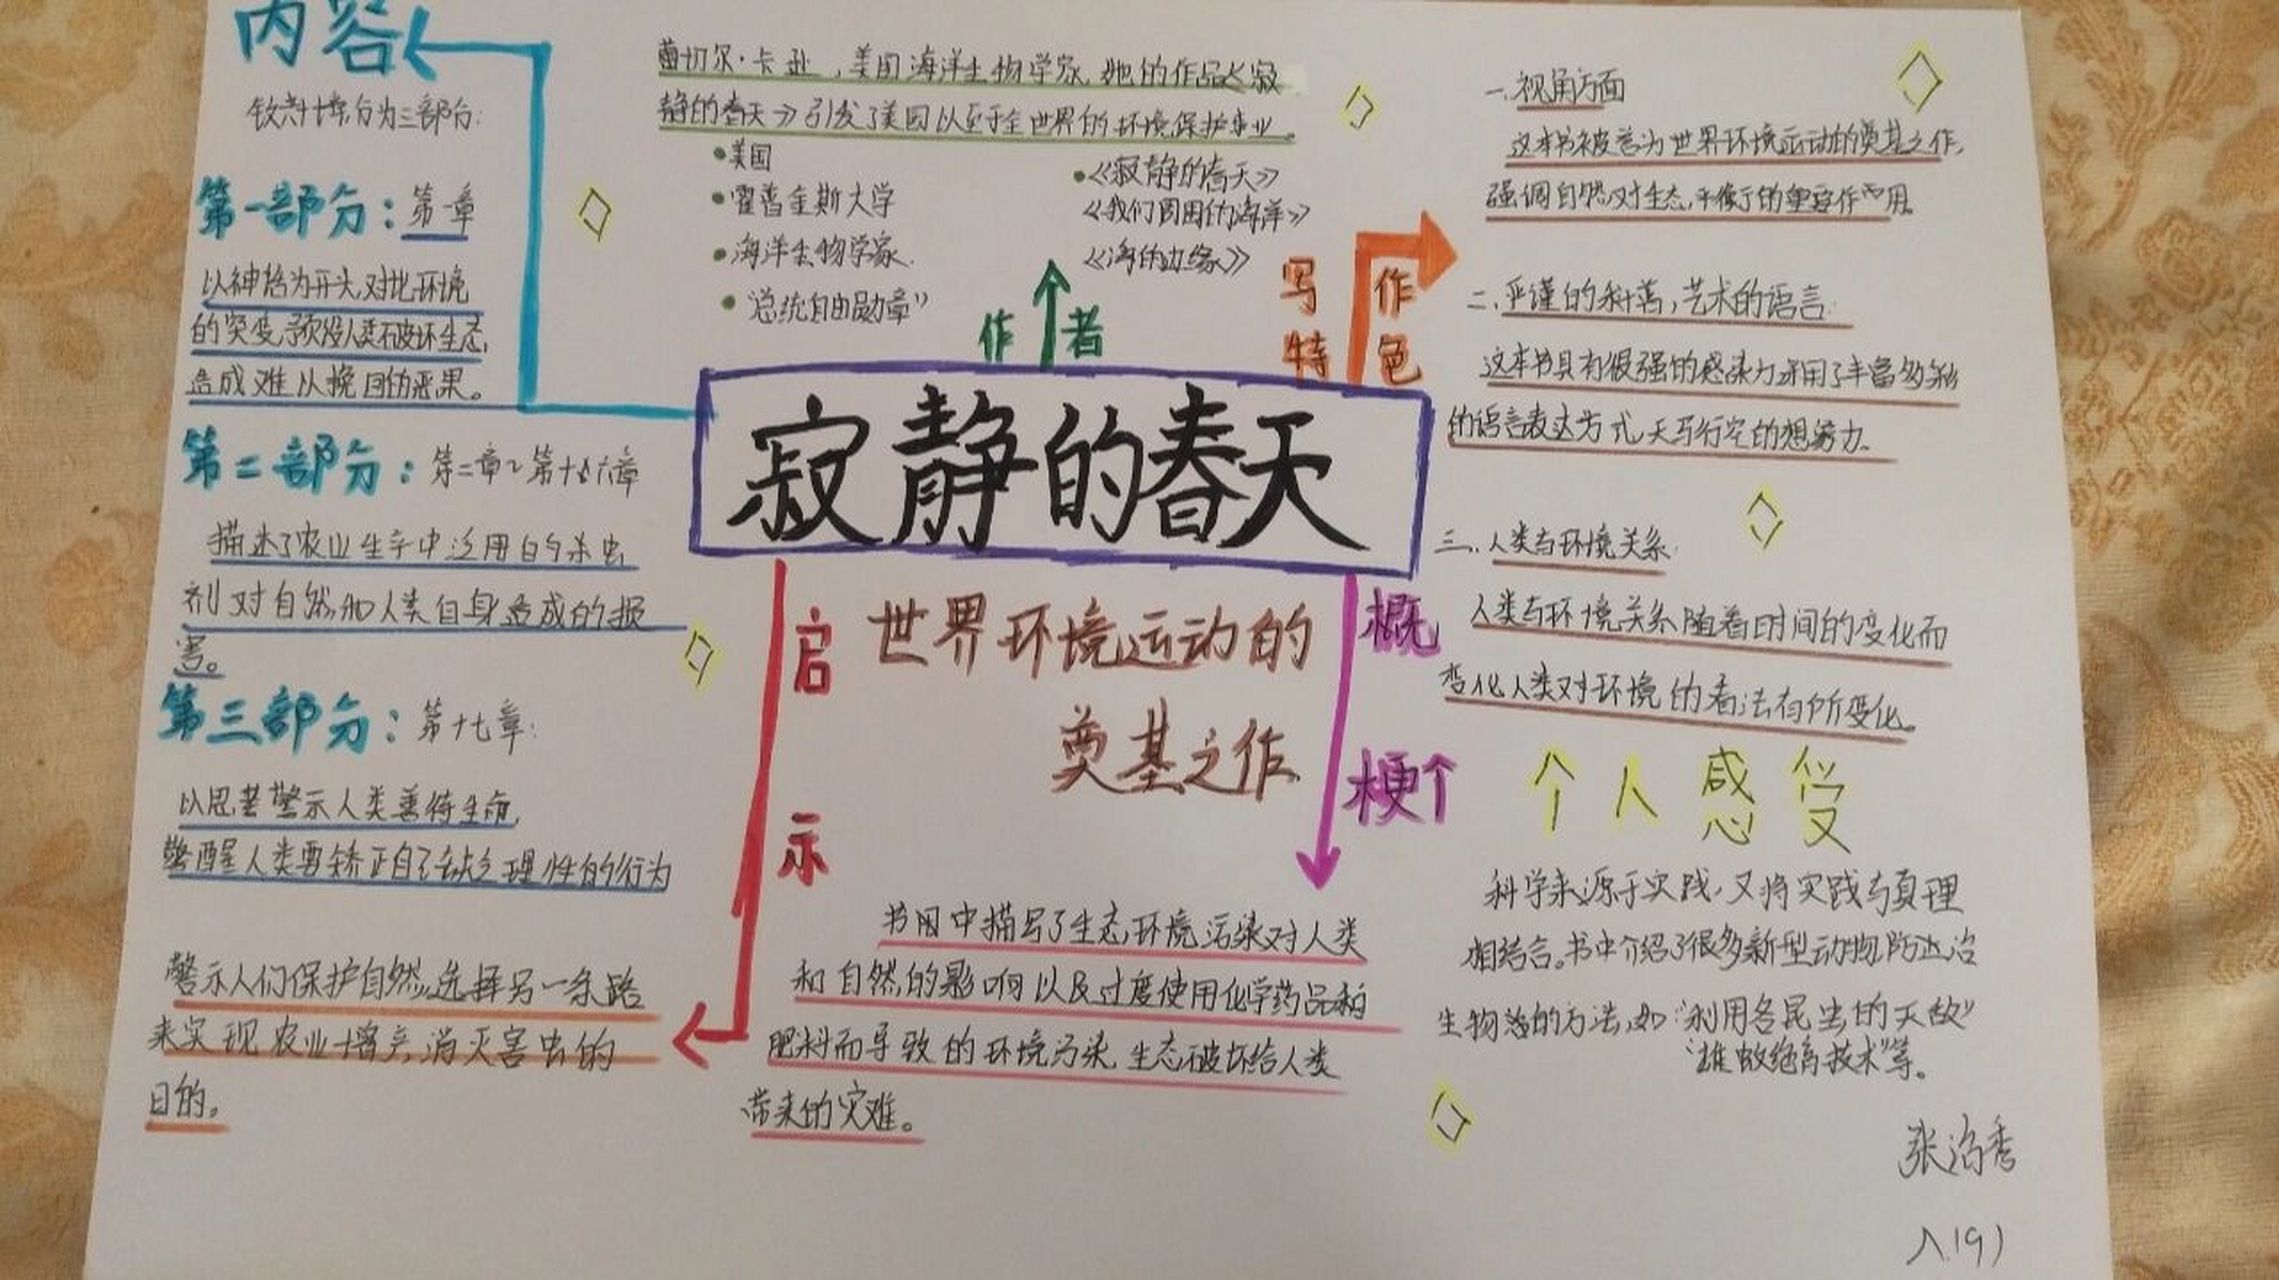 内容
钦共十七章,分为三部分:
第一部分:第一章
以神话为开头,对比环境
的突变,预设人类破坏生态,
造成难以挽回的恶果。
第二部分:第二章~第十六章
描述了农业生产中泛用的杀虫
剂对自然和人类自身造成的损
害。
第三部分:第十七章:
以思考警示人类善待生命,
警醒人类要矫正自己缺乏理性的行为
蕾切尔·卡逊,美国海洋生物学家,她的作品《寂
静的春天》引发了美国以至于全世界的环境保护事业。
•美国
•霍普金斯大学
•海洋生物学家.
•“总统自由勋章”
•《寂静的春天》
《我们周围的海洋》
《海的边缘》
作者
写作
特色
一.视角方面
这本书被誉为世界环境运动的奠基之作,
强调自然对生态,平衡的重要作用。
二.严谨的科普,艺术的语言:
这本书具有很强的感染力,采用了丰富多彩
的语言表达方式,天马行空的想象力.
三.人类与环境关系:
人类与环境关系随着时间的变化而
变化人类对环境的看法有所变化。
寂静的春天
世界环境运动的
奠基之作
启示
警示人们保护自然,选择另一条路
来实现农业增产,消灭害虫的
目的。
梗概
书中描写了生态环境污染对人类
和自然的影响以及过度使用化学药品和
肥料而导致的环境污染,生态破坏给人类
带来的灾难。
个人感受
科学来源于实践,又将实践与真理
相结合。书中介绍了很多新型动物防治
生物的方法,如:“利用各昆虫的天敌”
“雄敌绝育技术”等。
张治秀
八.(9)